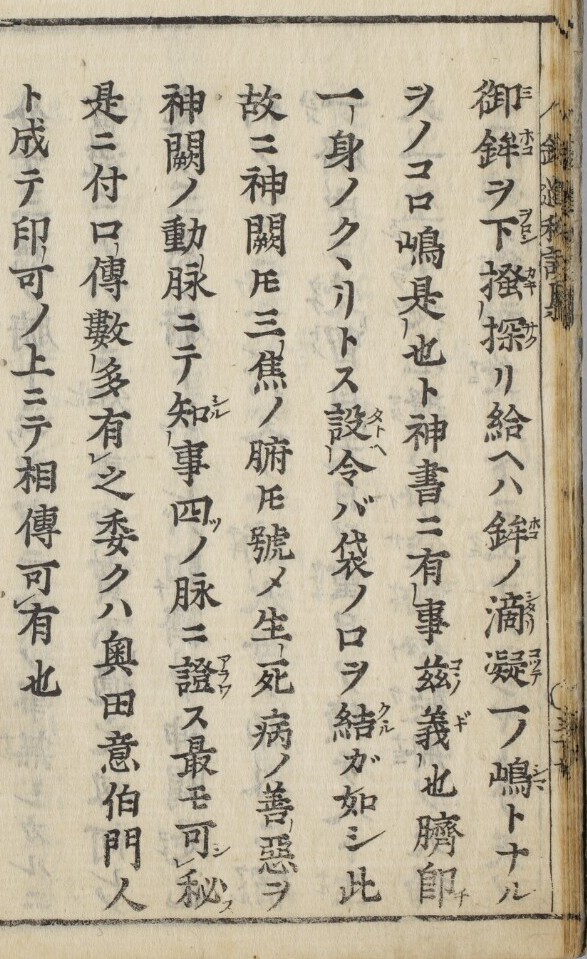 御鉾ヲ下掻探リ給ヘハ鉾ノ滴凝一ノ嶋トナル
ヲノコロ嶋是也ト神書ニ有事茲義也臍卽
一身ノクヽリトス設令バ袋ノロヲ結ガ如シ此
故ニ神闕𪜈三焦ノ腑𪜈號メ生死病ノ善惡ヲ
神闕ノ動脉ニテ知事四ツノ脉ニ證ス最モ可秘
是ニ付口傳數多有之委クハ奥田意伯門人
ト成テ印可ノ上ニテ相傳可有也